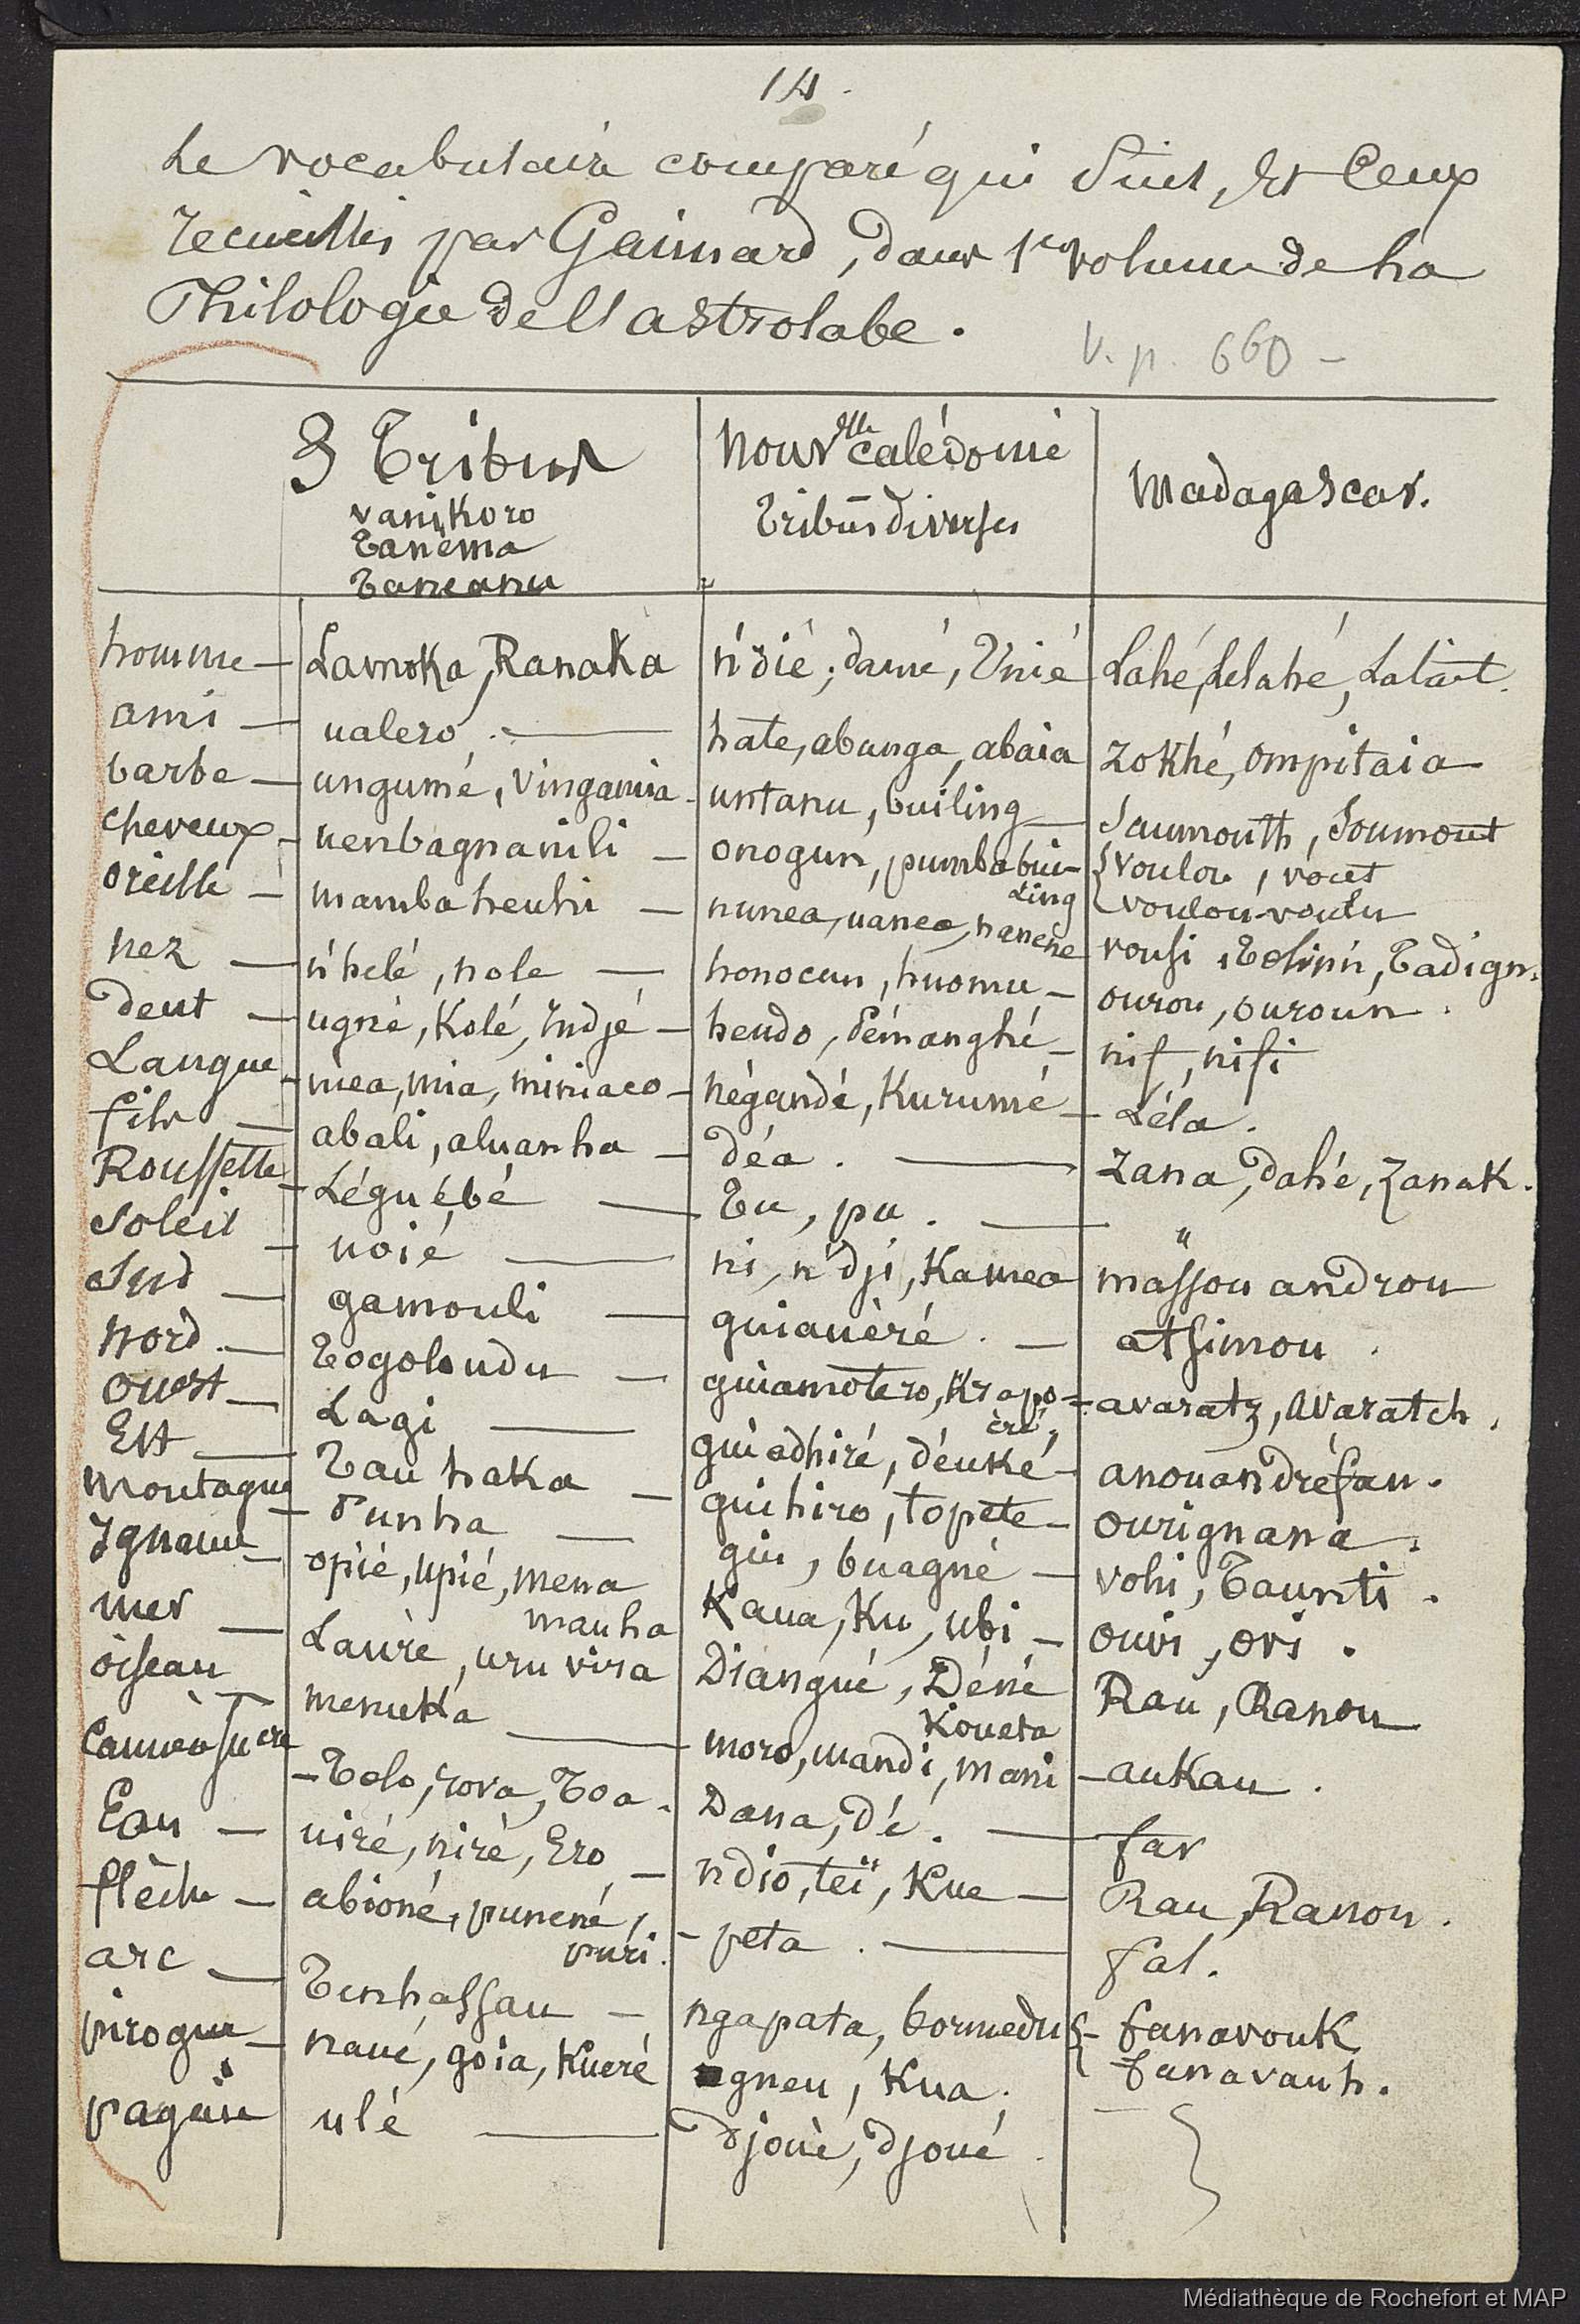 14.
Le vocabulaire comparé qui suit, est ceux
recueillis par Gaimard, dans 1er volume de la
Philologie de l'astrolabe.
V. p. 660 -
3 Tribus
vanikoro
Tanéma
Taneanu
Nouvelle calédonie
Tribus diverses
Madagascar.
homme — Lamoka, Ranaka n'dié, damé, Unié Lahé, Lelahé, Lalait.
ami — ualero. — hate, abanga, abaia zokhé, ompitaia
barbe — ungumé, vingamia - untanu, builing — Saumouth, Soumout
cheveux - uenbagnanili — onogun, pumbabui-ling { voulou, vout
voulou-voulu
oreille — mambaheuhi — nunea, uanea, nanene voufi, Tofini, Tadign.
nez — n'helé, nole — honocun, huomu — ourou, ouroun.
Dent — ugné, Kolé, indjé — hendo, pémanghé — nif, nifi
Langue - mea, mia, miniaco - hégandé, Kurumé — Léla.
fils — abali, aluanha — déa. — zana, dahé, zanak.
Roussette - Léguébé — Tu, pu. — "
Soleil — uoié — ni, n'dji, Kamea massou androu
Sud — gamouli — guiauèré. — atsimou.
Nord — Togoloudu — guiamotero, Krapo-èré, - avaratz, avaratch.
Ouest — Lagi — guiadhiré, déuké - anouandréfan.
Est — Tau haka — guihiro, topete — ourignana.
Montagne — punha — gui, buagné — vohi, Taunti.
Igname — opié, upié, mena
manha Kaua, Ku, ubi — ouvi, ovi.
mer — Laurè, uru vira Diangué, Déné
Kouera Rau, Ranou
oiseau — menuka — moro, mandi, mani — aukau.
Canne à sucre — Tolo, rova, Toa. Dana, dé. — far
Eau — uiré, niré, Ero — ndio, teï, Kue — Rau, Ranou.
flèche — abioné, punené,
puri. - peta. — fal.
arc — Tenhassau — ngapata, bormedu { - fanavouk
fanavauh.
pirogue — naué, goia, Kueré ugneu, Kua.
pagaïe ulé — djouè, djoué.
Médiathèque de Rochefort et MAP